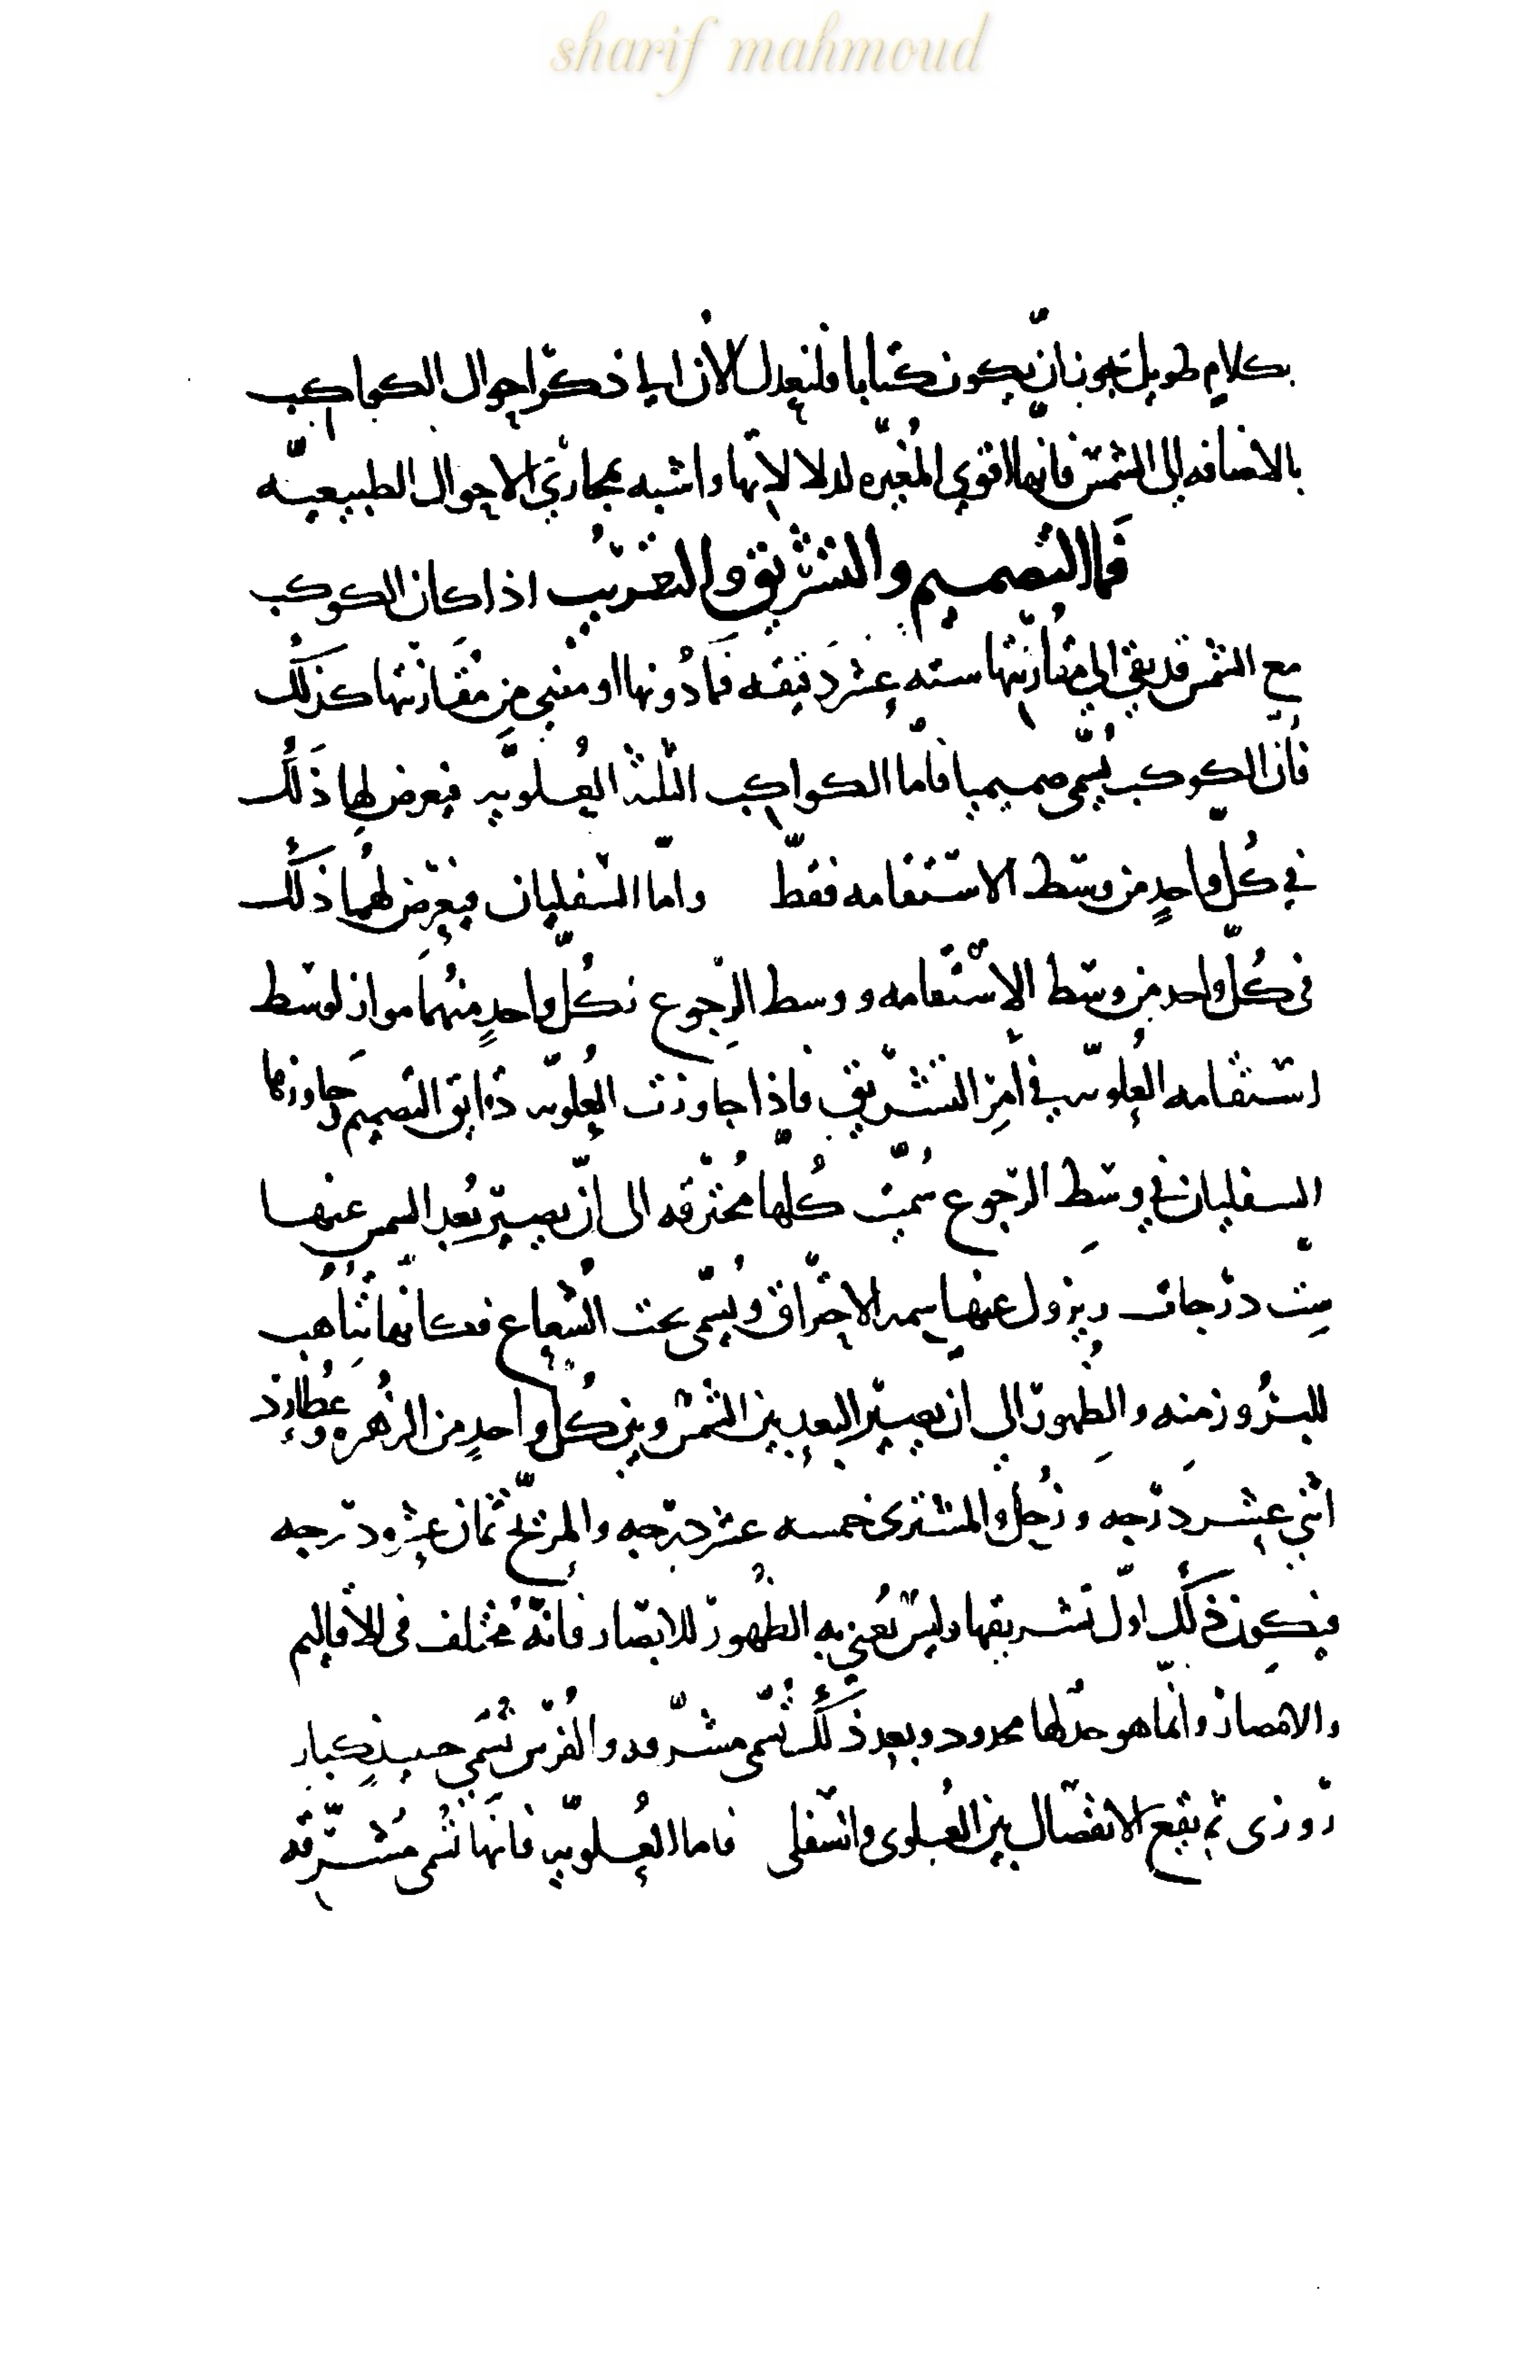 sharif mahmoud
بكلامٍ طويل يجوز ان يكون كتابا فلنعدل الأن الى ذكر احوال الكواكب
بالاضافه الى الشمس فانها الاقوي المُغيّره لدلالاتها واشبه بمجاري الاحوال الطبيعيّه
فما التصميم والتشريق والتغريب اذا كان الكوكب
مع الشمس قد بقى الى مقارنتها ستّه عشر دَقيقه فمادُونها او مضى مِن مُقارنتها كذلك
فان الكوكب يُسمّى صميميا فامّا الكواكب الثلثه العُلويّه فيعرض لها ذَلك
في كُلّ واحدٍ من وسط الاستقامه فقط واما السفليان فيعرض لهُما ذلك
فى كُلّ واحد من وسط الاستقامه و وسط الرجوع فكُلّ واحدٍ منهُما مواز لوسط
استقامه العُلويّه في أمر التشريق فاذا جاوزت العُلويّه دقايق التصميم وجاوزها
السفليان في وسط الرّجوع سُمّيت كُلّها مُحترقه الى ان يصير بُعد الشمس عنها
ستّ درجات ويزول عنها سمه الاحتراق ويُسمّى تحت الشُعاع فكانها تتاهب
للبُرُوز منه والظهور الى ان يصير البعد بين الشمس وبين كُلّ واحدٍ من الزُهره وعُطارد
اثنى عشر دَرجه و زُحل والمشترى خمسه عشر درجه والمريخ ثمان عشره درجه
فيكون ذلك اوّل تشريقها وليس نُعنى به الظُهور للابصار فانّهُ مُختلف فى الاقاليم
والامصار وانّما هو حدّ لها محدود وبعد ذَلك تُسمّى مشرّقه والفُرس تُسَمّى حينيذٍ كبار
روزى ثم يقع الانفصال بين العُلوى والسفلى فاما العُلويّه فانها تُسمى مُشرّقه